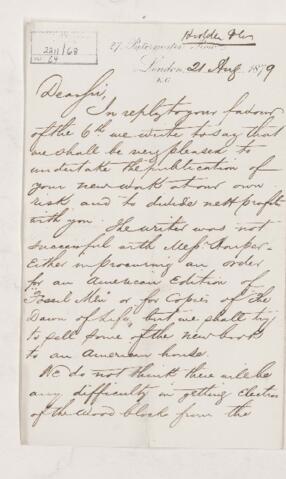 Hodder &
2211/68
64
27, Paternoster Row
London, 21 Aug 1879
E.C.
Dear Sir,
In reply to your favour
of the 6th we write to say that
we shall be very pleased to
undertake the publication of
your new work at our own
risk and to divide nett profits
with you. The writer was not
successful with Messrs Harper
Either in procuring an order
for an American Edition of
Fossil Men or for Copies of the
Dawn of Life, but we shall try
to sell some of the new book
to an American house.
We do not think there will be
any difficulty in getting Electros
of the Wood blocks from the